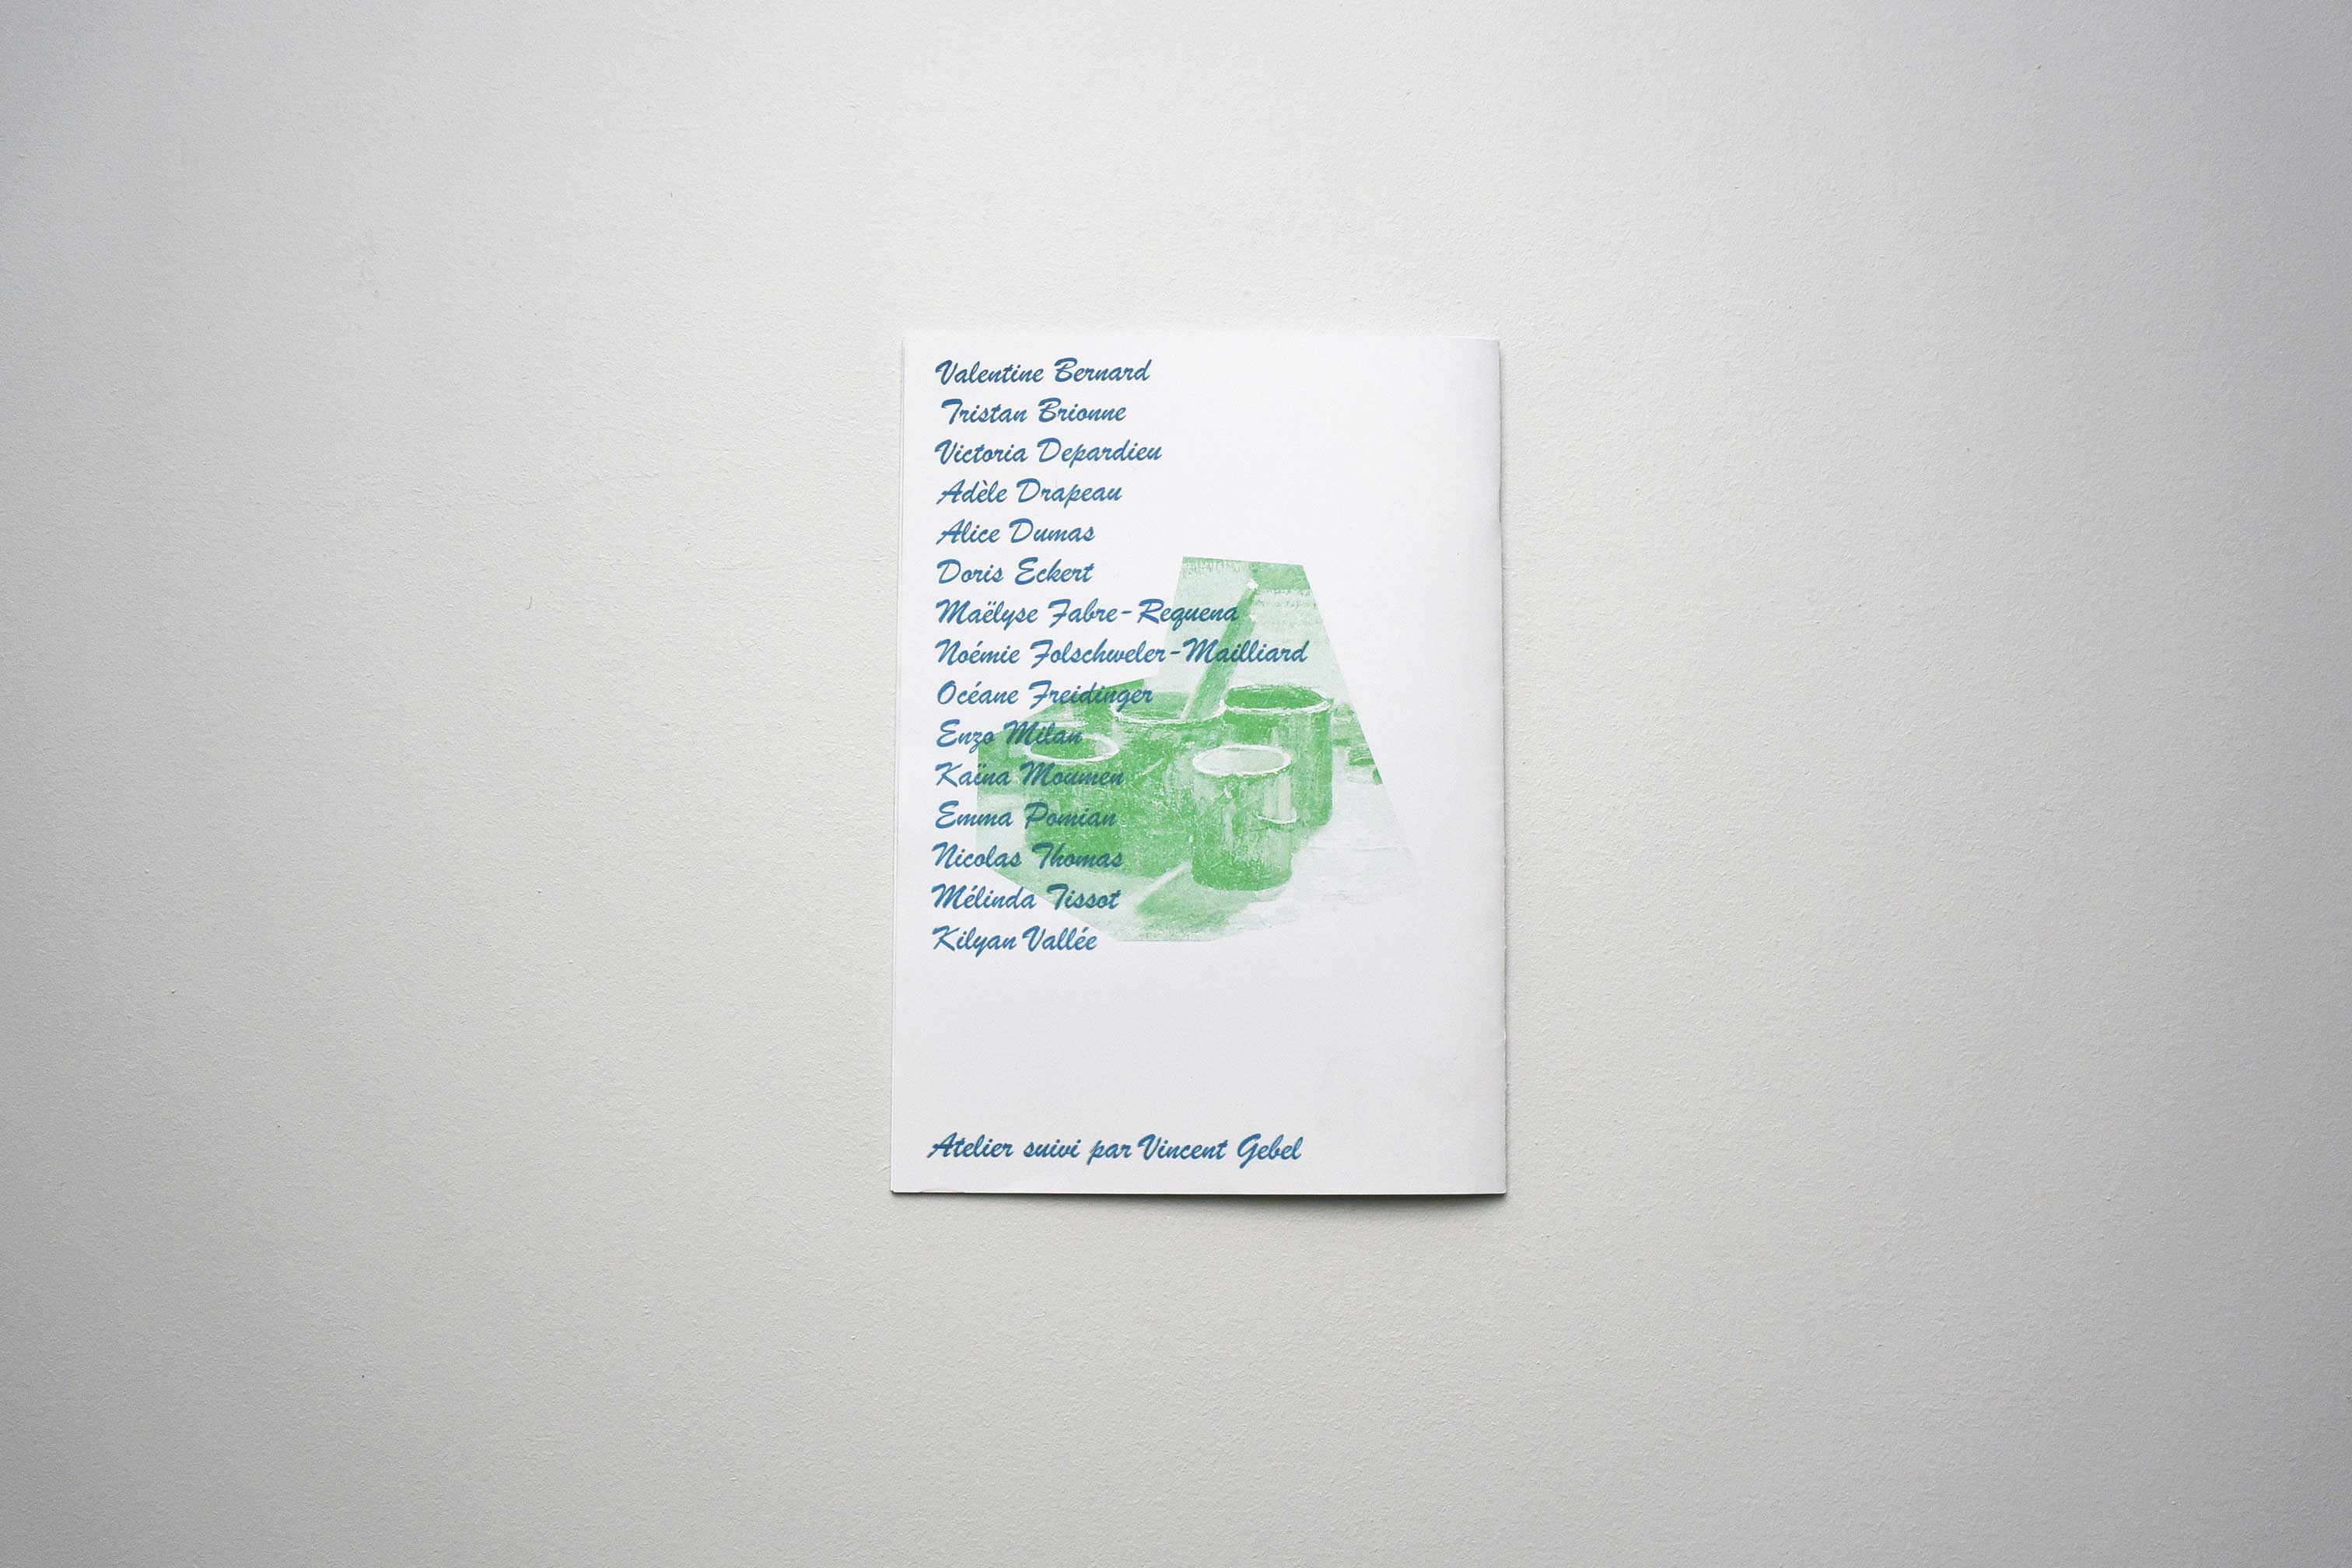 Valentine Bernard
Tristan Brionne
Victoria Depardieu
Adèle Drapeau
Alice Dumas
Doris Eckert
Maëlyse Fabre-Requena
Noémie Folschweler-Mailliard
Océane Freidinger
Enzo Milan
Kaïna Moumen
Emma Pomian
Nicolas Thomas
Mélinda Tissot
Kilyan Vallée
Atelier suivi par Vincent Gebel